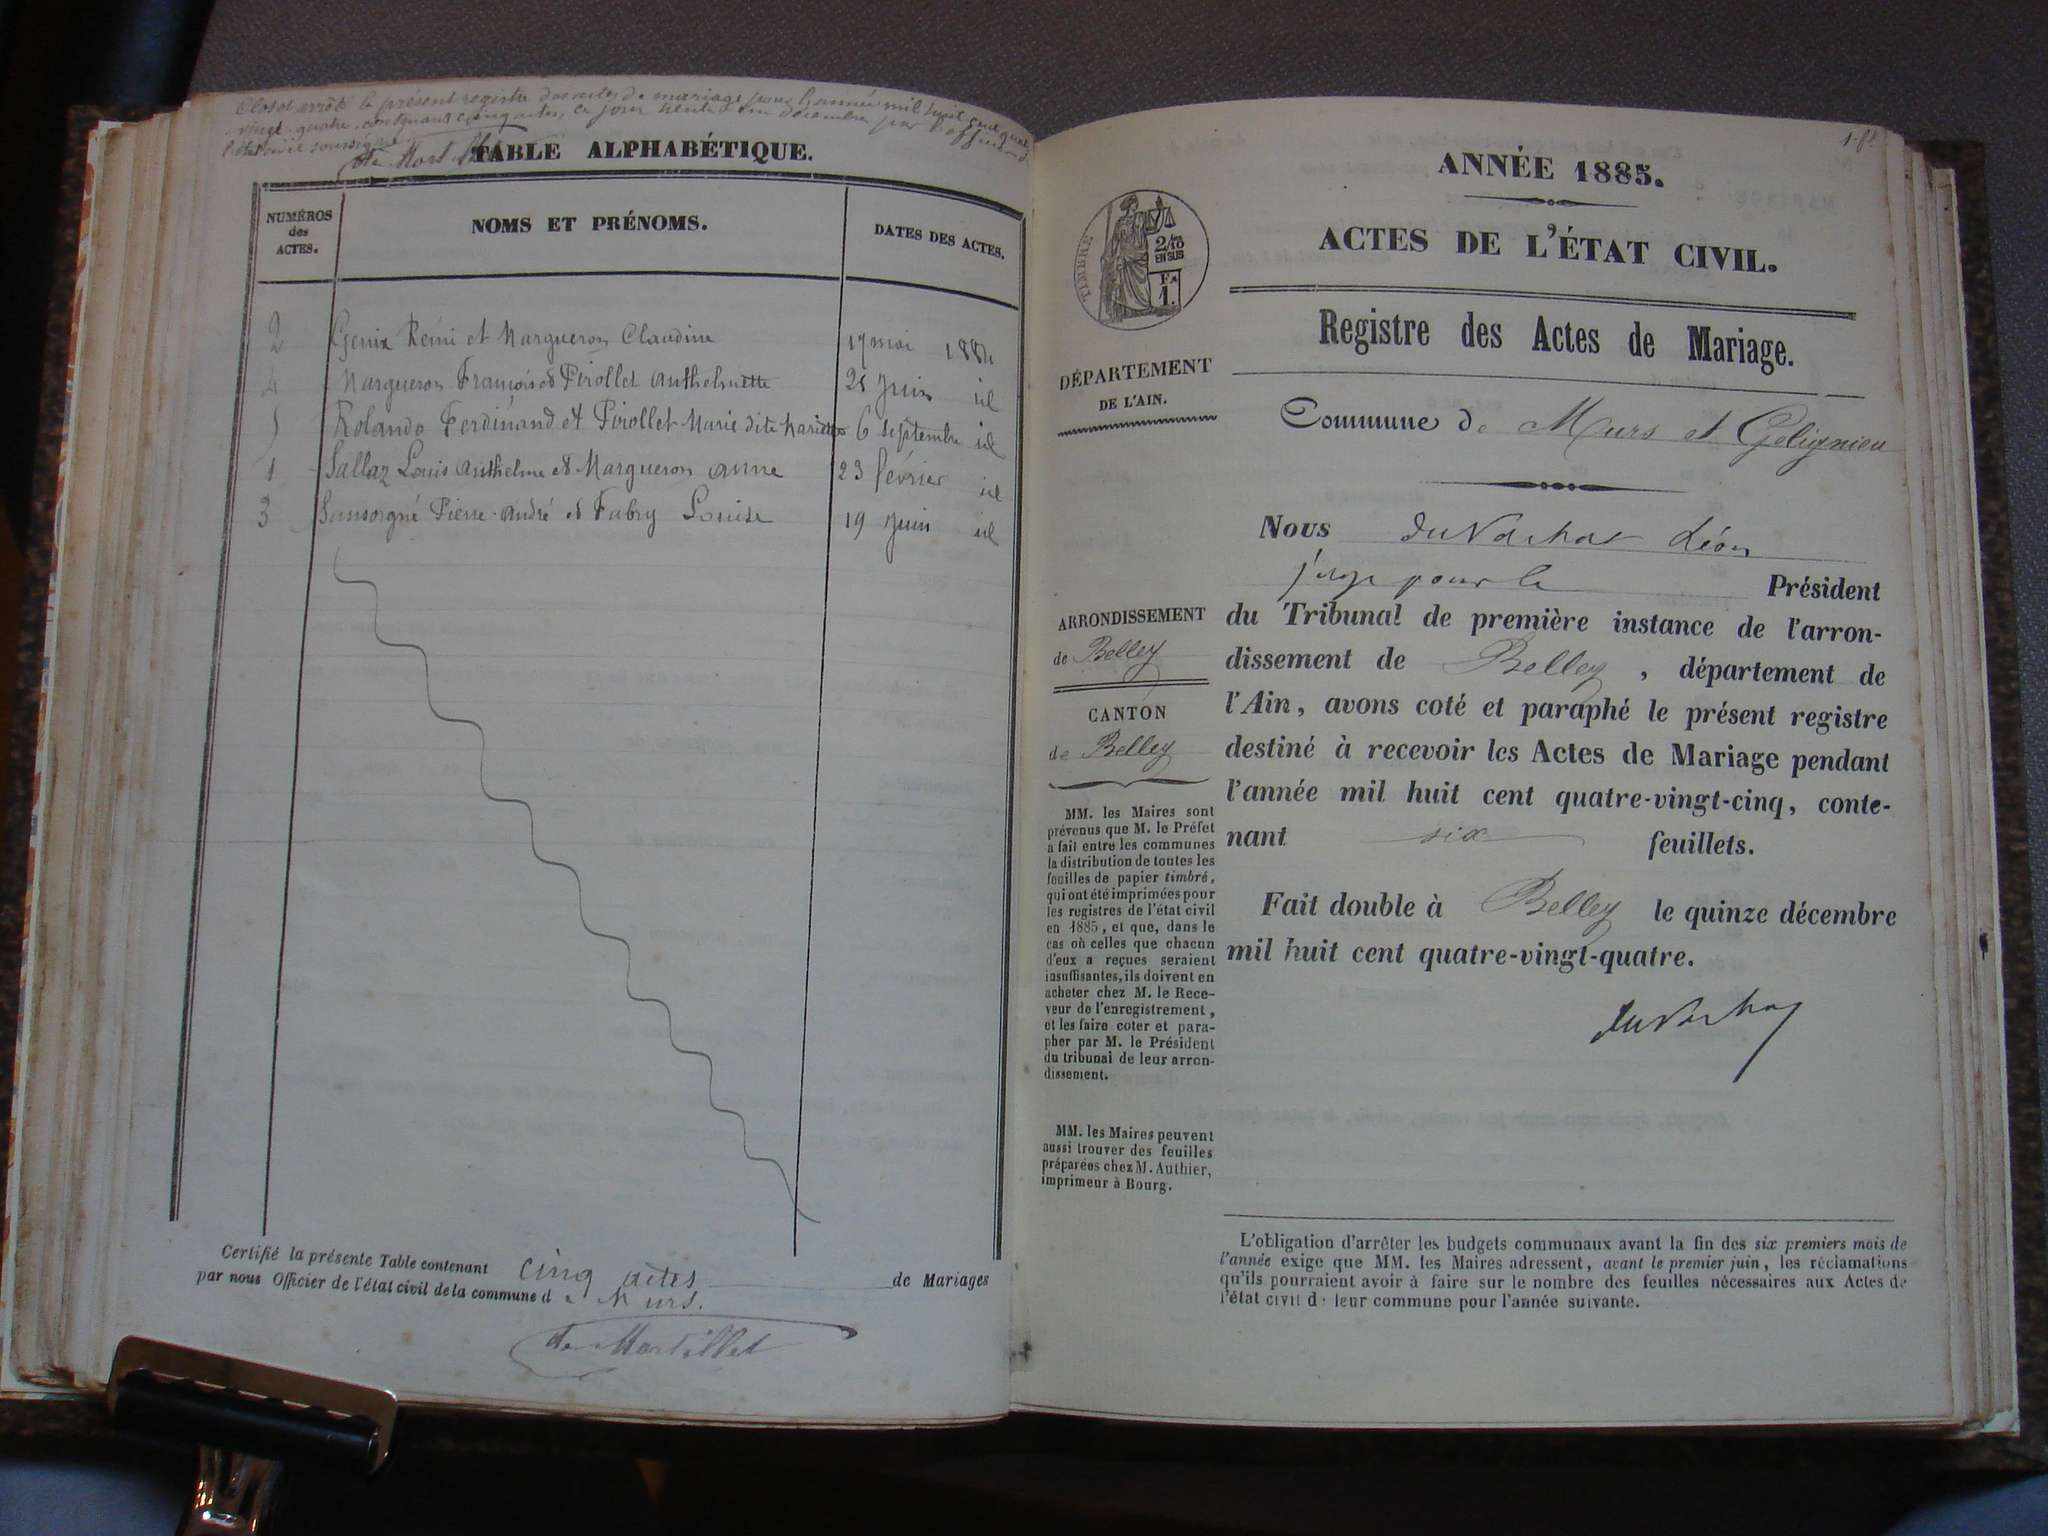 Clos et arrêté le présent registre des actes de mariage pour l'année mil huit cent quatre
vingt-quatre, contenant cinq actes, ce jour trente un décembre par l'officier de
l'état civil soussigné
de Mortillet
TABLE ALPHABÉTIQUE.
NUMÉROS
des
ACTES.
NOMS ET PRÉNOMS.
DATES DES ACTES.
2 Genix Rémi et Margueron Claudine 17 mai 1884
4 Margueron François et Pirollet Anthelmette 21 Juin id
5 Rolando Ferdinand et Pirollet Marie dite Mariette 6 septembre id
1 Sallaz Louis Anthelme et Margueron Anne 23 février id
3 Sansorgné Pierre-André et Fabry Louise 19 Juin id
Certifié la présente Table contenant cinq actes de Mariages
par nous Officier de l'état civil de la commune de Murs.
de Mortillet
1. ft
ANNÉE 1885.
ACTES DE L'ÉTAT CIVIL.
TIMBRE
2/10
EN SUS
Fc
1.
Registre des Actes de Mariage.
DÉPARTEMENT
DE L'AIN.
Commune de Murs et Gelignieu
Nous du Vachat Léon
juge pour le Président
du Tribunal de première instance de l'arron-
dissement de Belley, département de
l'Ain, avons coté et paraphé le présent registre
destiné à recevoir les Actes de Mariage pendant
l'année mil huit cent quatre-vingt-cinq, conte-
nant six feuillets.
Fait double à Belley le quinze décembre
mil huit cent quatre-vingt-quatre.
du Vachat
ARRONDISSEMENT
de Belley
CANTON
de Belley
MM. les Maires sont
prévenus que M. le Préfet
a fait entre les communes
la distribution de toutes les
feuilles de papier timbré,
qui ont été imprimées pour
les registres de l'état civil
en 1885, et que, dans le
cas où celles que chacun
d'eux a reçues seraient
insuffisantes, ils doivent en
acheter chez M. le Rece-
veur de l'enregistrement,
et les faire coter et para-
pher par M. le Président
du tribunal de leur arron-
dissement.
MM. les Maires peuvent
aussi trouver des feuilles
préparées chez M. Authier,
imprimeur à Bourg.
L'obligation d'arrêter les budgets communaux avant la fin des six premiers mois de
l'année exige que MM. les Maires adressent, avant le premier juin, les réclamations
qu'ils pourraient avoir à faire sur le nombre des feuilles nécessaires aux Actes de
l'état civil de leur commune pour l'année suivante.